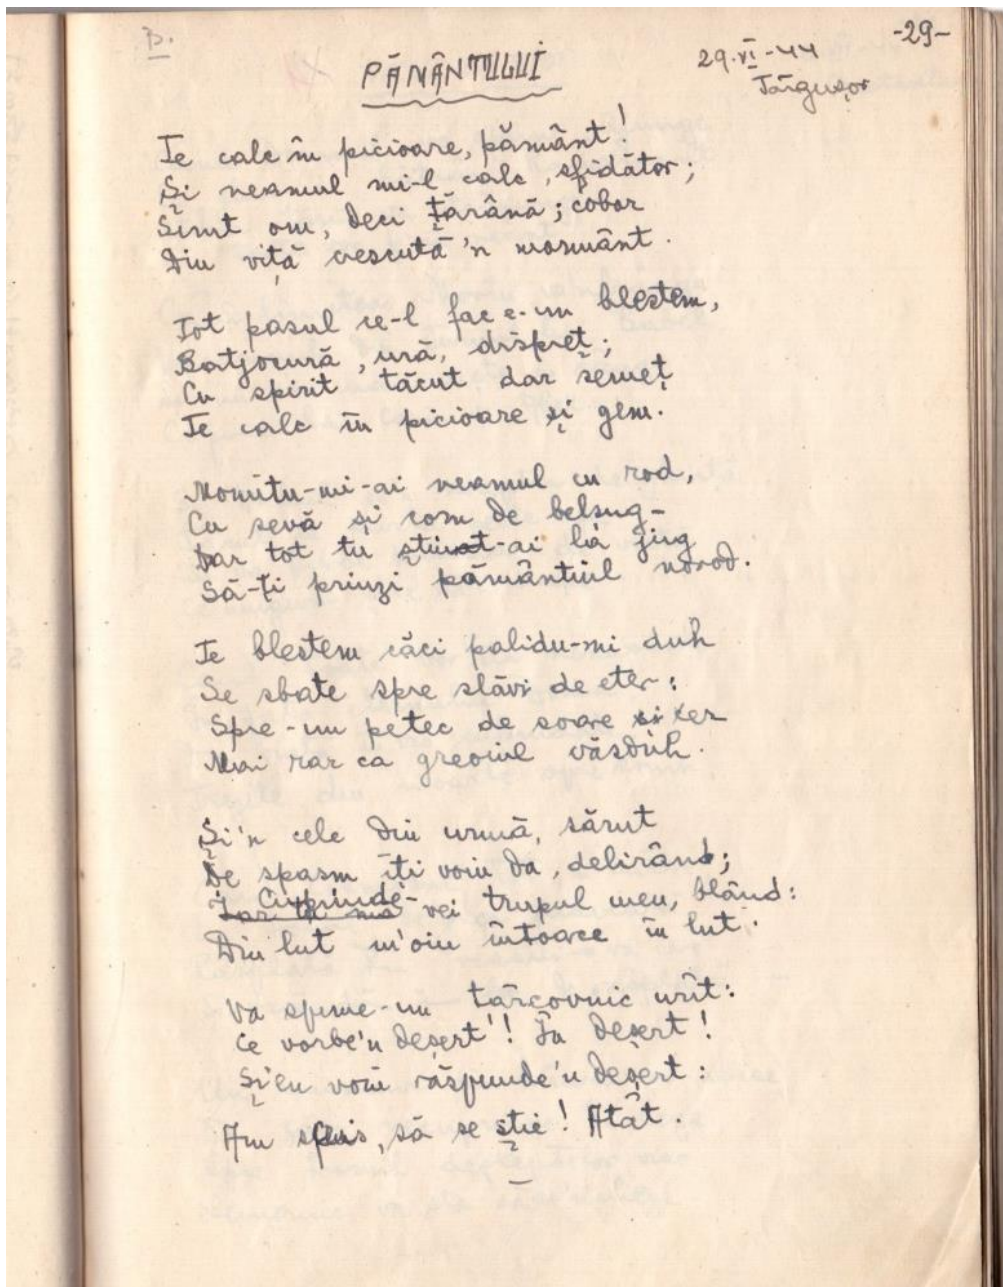 B.
-29-
PĂMÂNTULUI
29.VI-44
Târgușor
Te calc în picioare, pământ!
Și neamul mi-l calc, sfidător;
Sunt om, deci țărână; cobor
Din viță crescută'n mormânt.
Tot pasul ce-l fac e-un blestem,
Batjocură, ură, dispreț;
Cu spirit tăcut dar semeț
Te calc în picioare și gem.
Momitu-mi-ai neamul cu rod,
Cu sevă și corn de belșug-
Dar tot tu știut-ai la jug
Să-ți prinzi pământiul norod.
Te blestem căci palidu-mi duh
Se sbate spre slăvi de eter:
Spre-un petec de soare și cer
Mai rar ca greoiul văsduh.
Și'n cele din urmă, sărut
De spasm îți voiu da, delirând;
Cuprinde-
Iar tu mă vei trupul meu, blând:
Din lut m'oiu întoarce în lut.
Va spune-un târcovnic urît:
Ce vorbe'n deșert! În deșert!
Și'eu voiu răspunde'n deșert:
Am spus, să se știe! Atât.